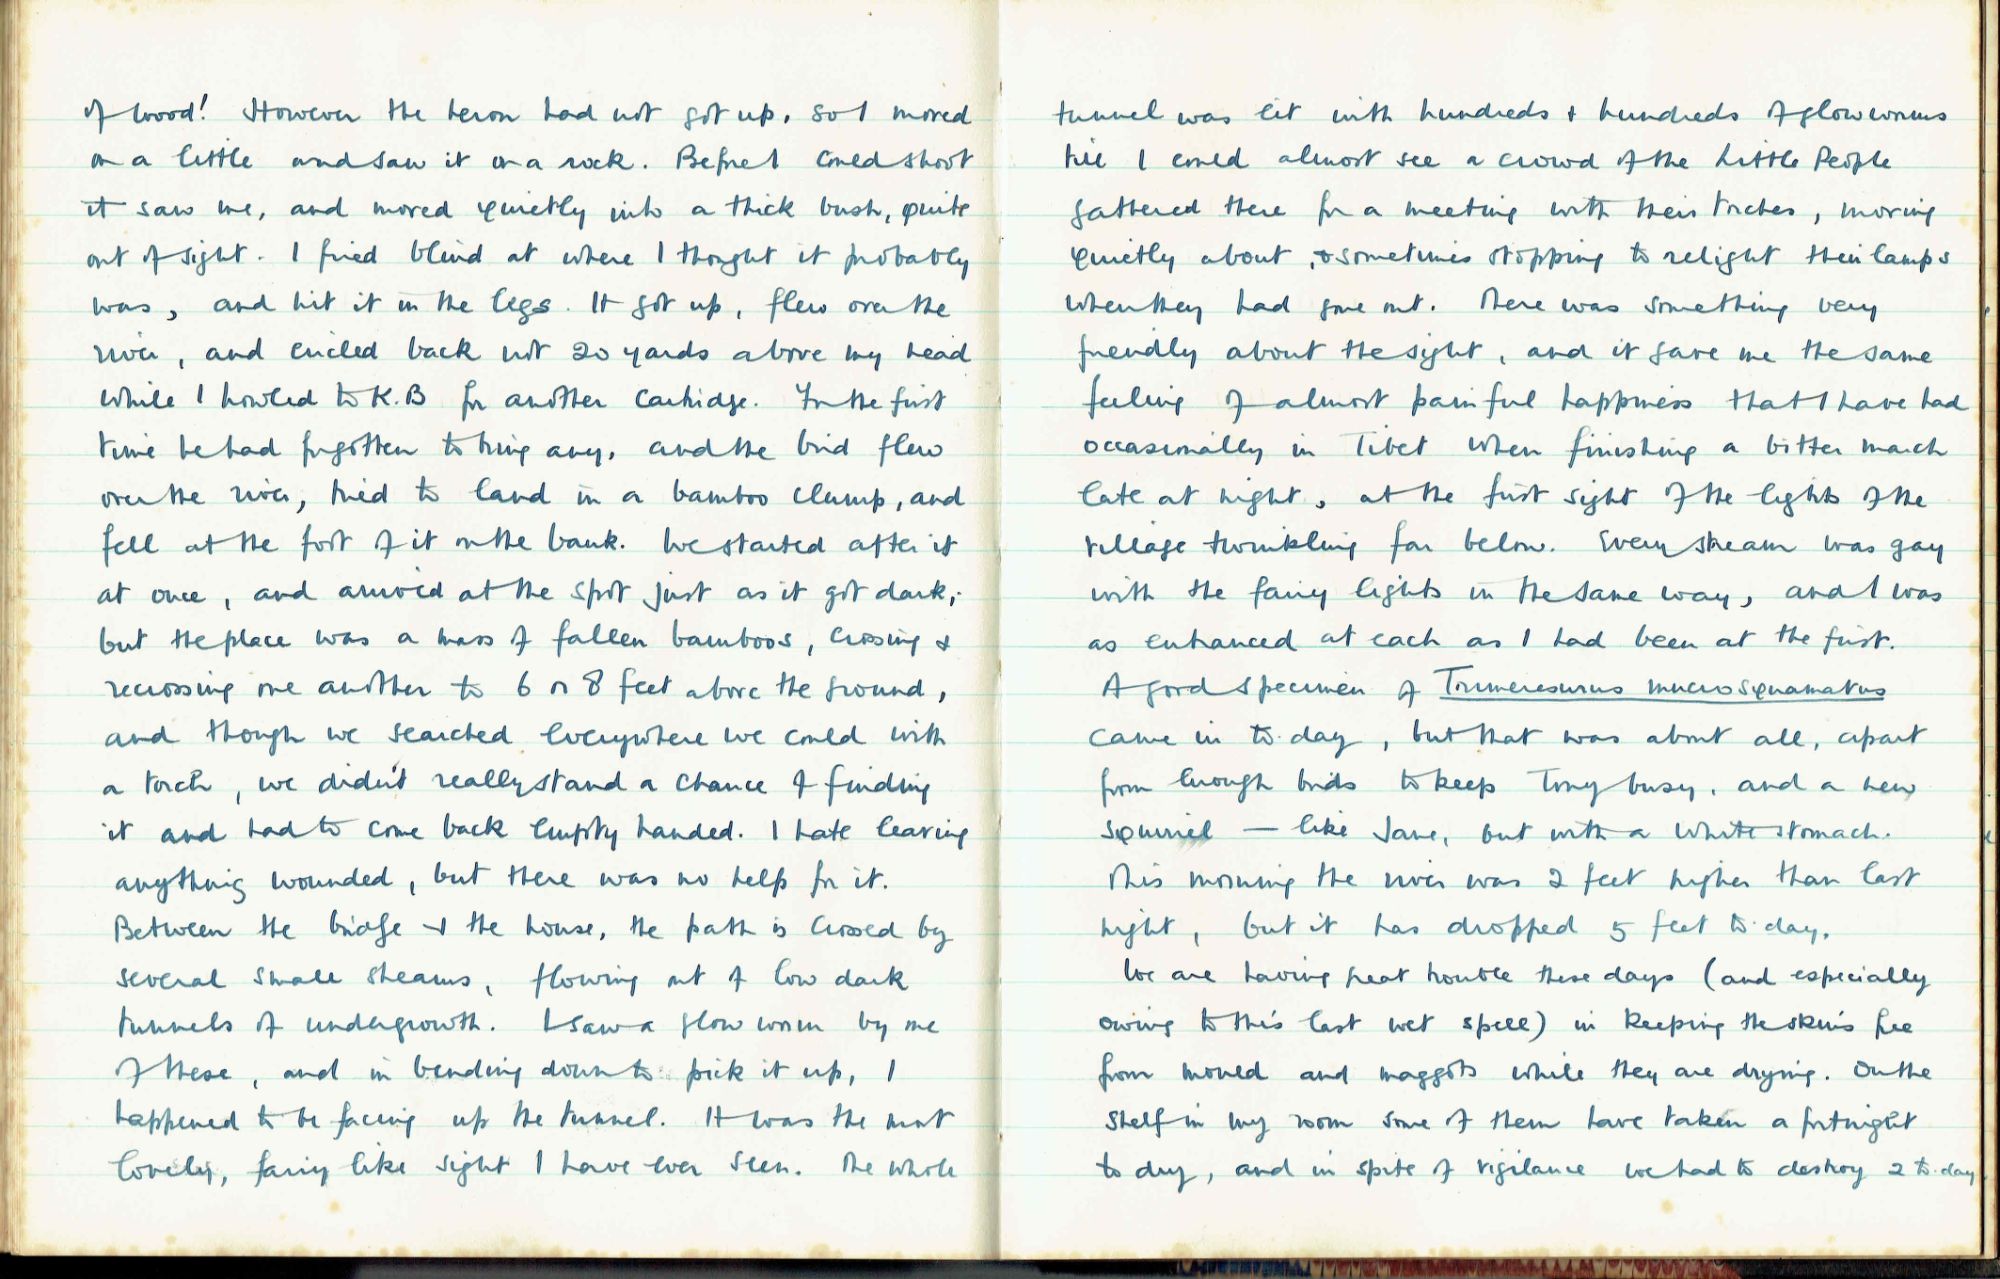 of wood! However the heron had not got up, so I moved
on a little and saw it on a rock. Before I could shoot
it saw me, and moved quietly into a thick bush, quite
out of sight. I fired blind at where I thought it probably
was, and hit it in the legs. It got up, flew over the
river, and circled back not 20 yards above my head
while I howled to K.B for another cartridge. For the first
time he had forgotten to bring any, and the bird flew
over the river, tried to land in a bamboo clump, and
fell at the foot of it on the bank. We started after it
at once, and arrived at the spot just as it got dark;
but the place was a mass of fallen bamboos, crossing &
recrossing one another to 6 or 8 feet above the ground,
and though we searched everywhere we could with
a torch, we didn't really stand a chance of finding
it and had to come back empty handed. I hate leaving
anything wounded, but there was no help for it.
Between the bridge & the house, the path is crossed by
several small streams, flowing out of low dark
tunnels of undergrowth. I saw a glow worm by one
of these, and in bending down to pick it up, I
happened to be facing up the tunnel. It was the most
lovely, fairy like sight I have ever seen. The whole
tunnel was lit with hundreds & hundreds of glow worms
till I could almost see a crowd of the Little People
gathered there for a meeting with their torches, moving
quietly about, & sometimes stopping to relight their lamps
when they had gone out. There was something very
friendly about the sight, and it gave me the same
feeling of almost painful happiness that I have had
occasionally in Tibet when finishing a bitter march
late at night, at the first sight of the lights of the
village twinkling far below. Every stream was gay
with the fairy lights in the same way, and I was
as entranced at each as I had been at the first.
A good specimen of Trimeresurus mucrosquamatus
came in to-day, but that was about all, apart
from enough birds to keep Tony busy, and a new
squirrel — like Jane, but with a white stomach.
This morning the river was 2 feet higher than last
night, but it has dropped 5 feet to-day.
We are having great trouble these days (and especially
owing to this last wet spell) in keeping the skins free
from mould and maggots while they are drying. On the
shelf in my room some of them have taken a fortnight
to dry, and in spite of vigilance we had to destroy 2 to-day